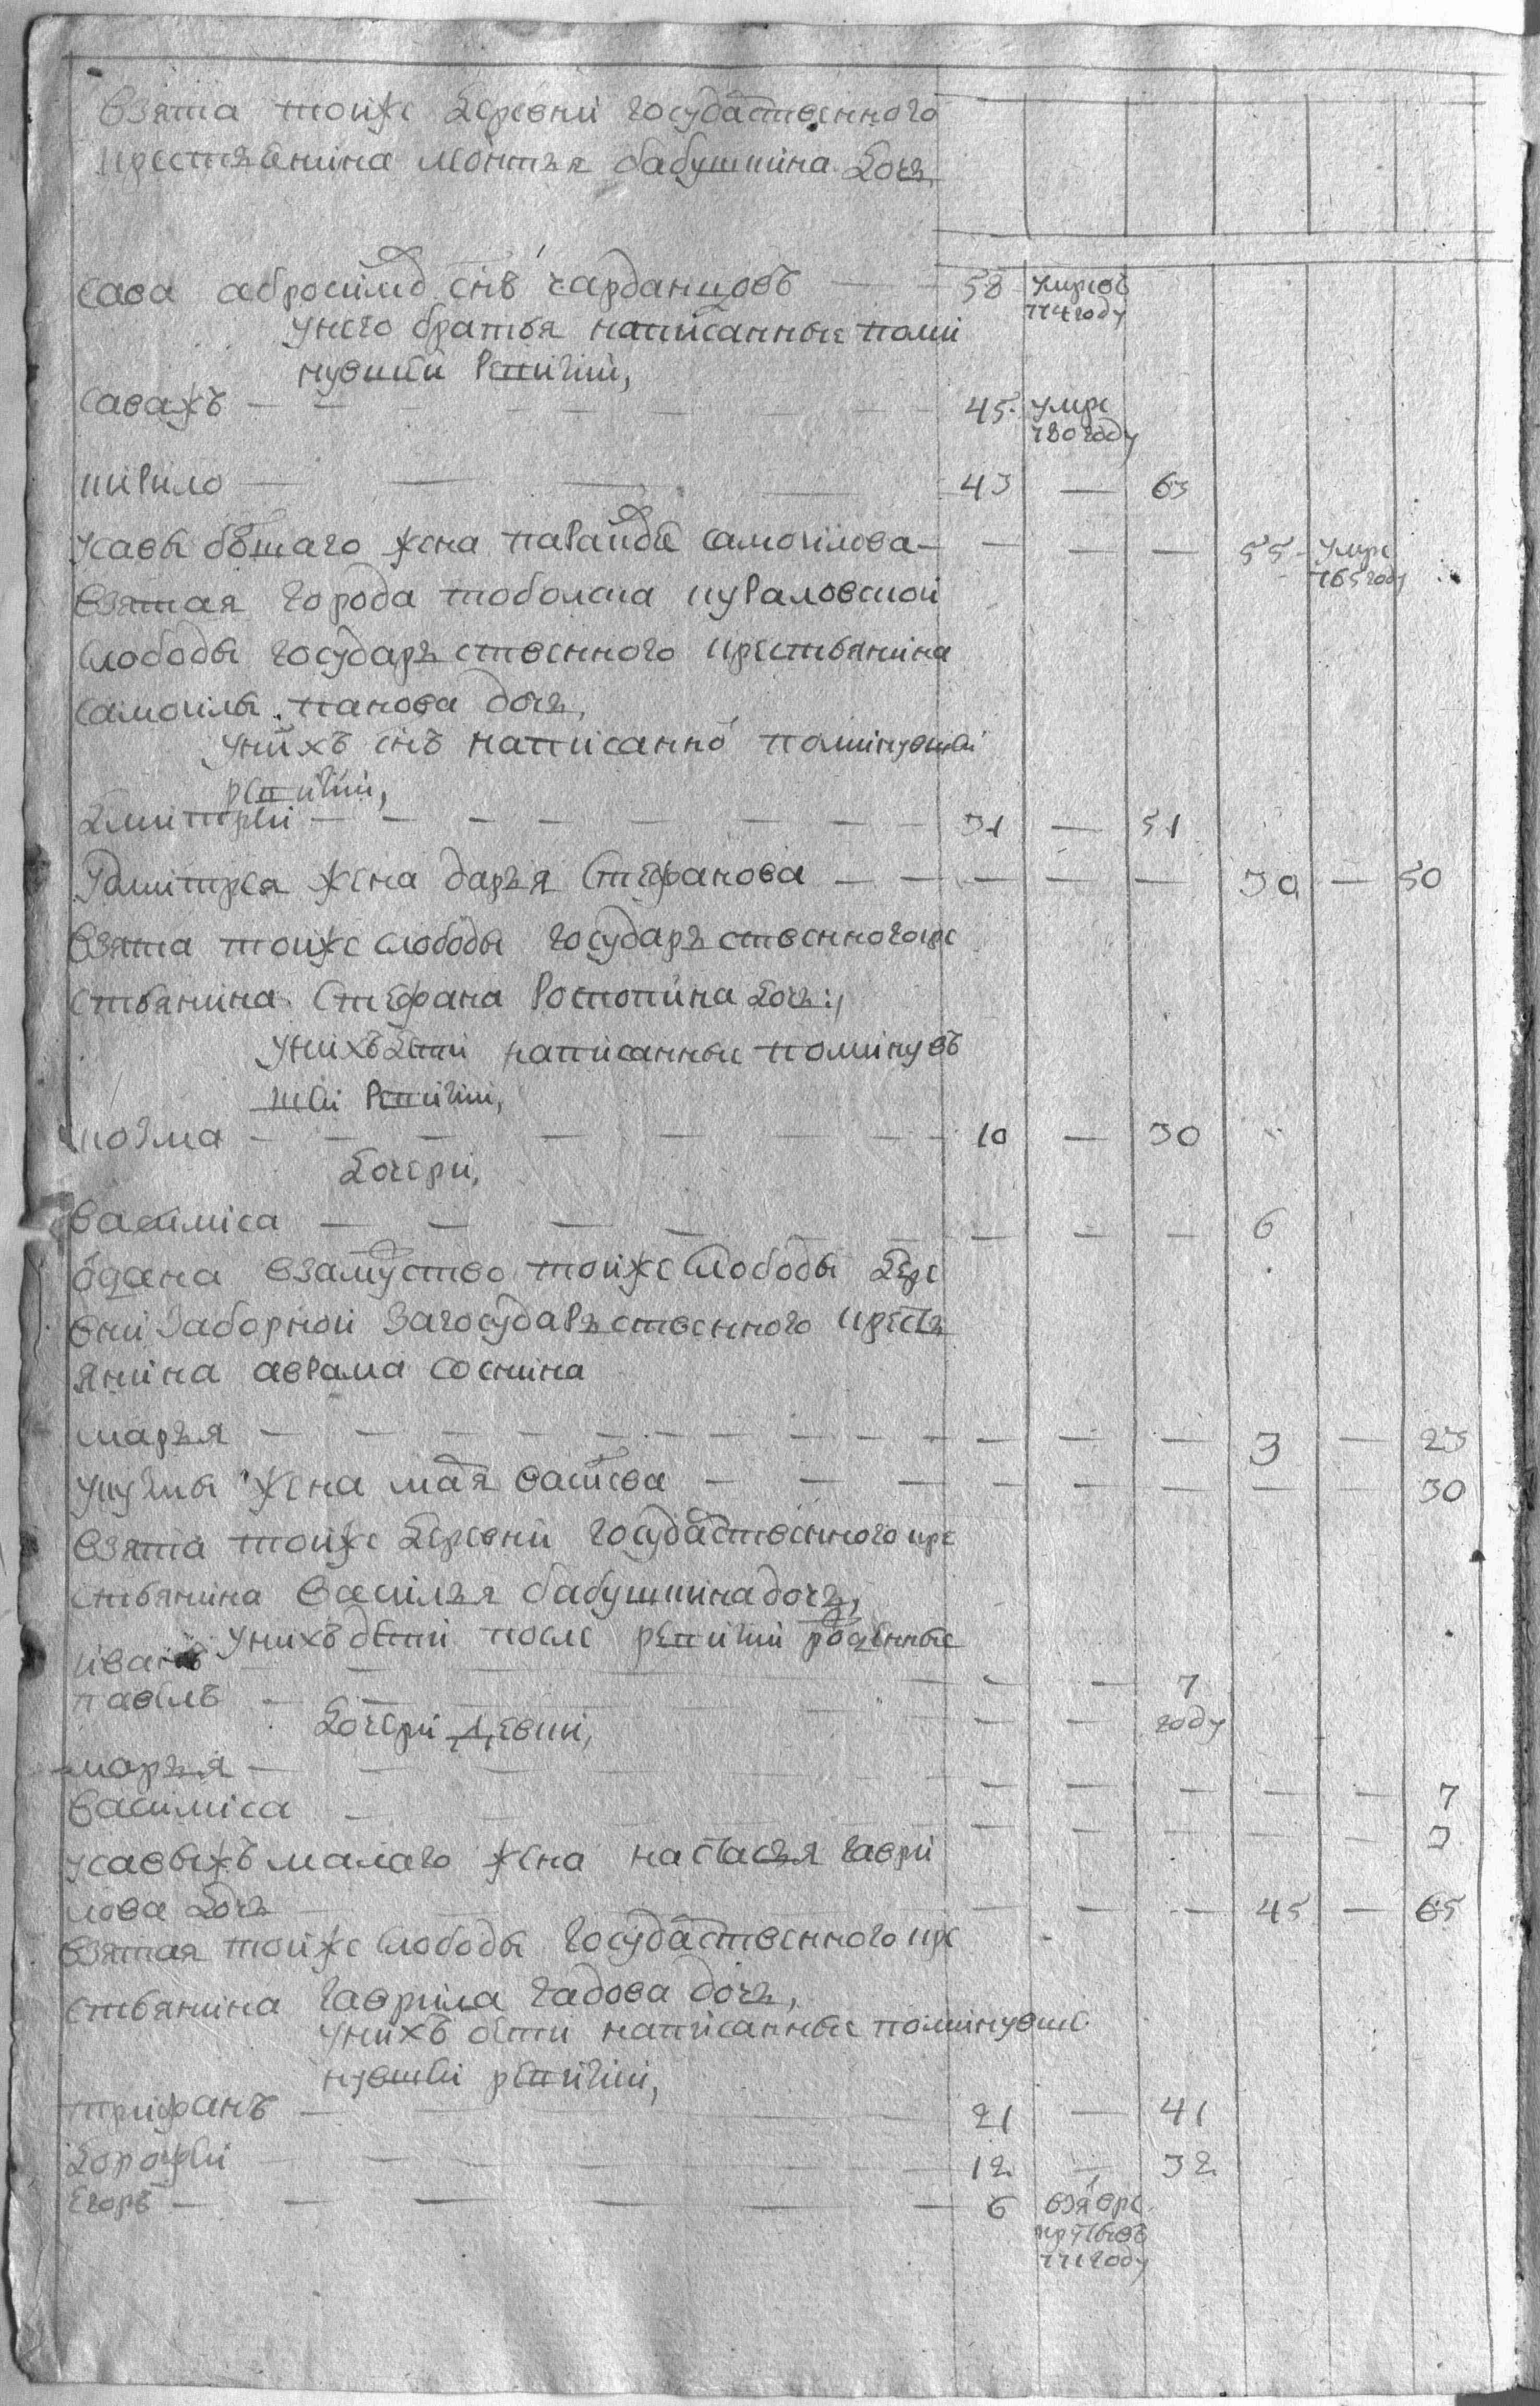 взята тоиже деревни государственного
крестьянина монтъя бабушкина дочь,
сава абросимов снъ чарданцовъ — 58 умревъ
774 году
у него братья написанные поми
нувшии ревизии,
саважъ — 45 умре
780 году
кирило — 43 — 63
у савы болшаго жена параскодья самоилова — — — — 55 умре
765 году
взятая города тоболска куваловской
слободы государъственного крестьянина
самоилы панова дочь,
у нихъ снъ написанной поминувшей
ревизии,
дмитреи — 31 — 51
у дмитрея жена даръя стефанова — — — — 30 — 50
взята тоиже слободы государъственного кре
стьянина стефана ростопина дочь,
у нихъ дети написанные поминувъ
шеи ревизии,
козма — 10 — 30
дочери,
василиса — — — — 6
отдана взамуство тоиже слободы дере
вни заборной за государъственного кресть
янина аврама соснина
маръя — — — — 3 — 23
у кузмы жена маря васильева — — — — — — 30
взята тоиже деревни государственного кре
стьянина василъя бабушкина дочь,
у нихъ дети после ревизии рожденные
иванъ — — — 7
павелъ — — — году
дочери девки,
маръя — — — — — — 7
василиса — — — — — — 3
у савыжъ малаго жена настасья гаври
лова дочь — — — — 45 — 65
взятая тоиже слободы государственного кре
стьянина гаврила гадова дочь,
у нихъ дети написанные поминувше
нувшей ревизии,
трифанъ — 21 — 41
дорофеи — 12 — 32
егоръ — 6 взя врекрутывъ
771 году